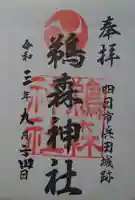 奉拝
四日市浜田城跡
鵜森神社
令和三年九月二十四日